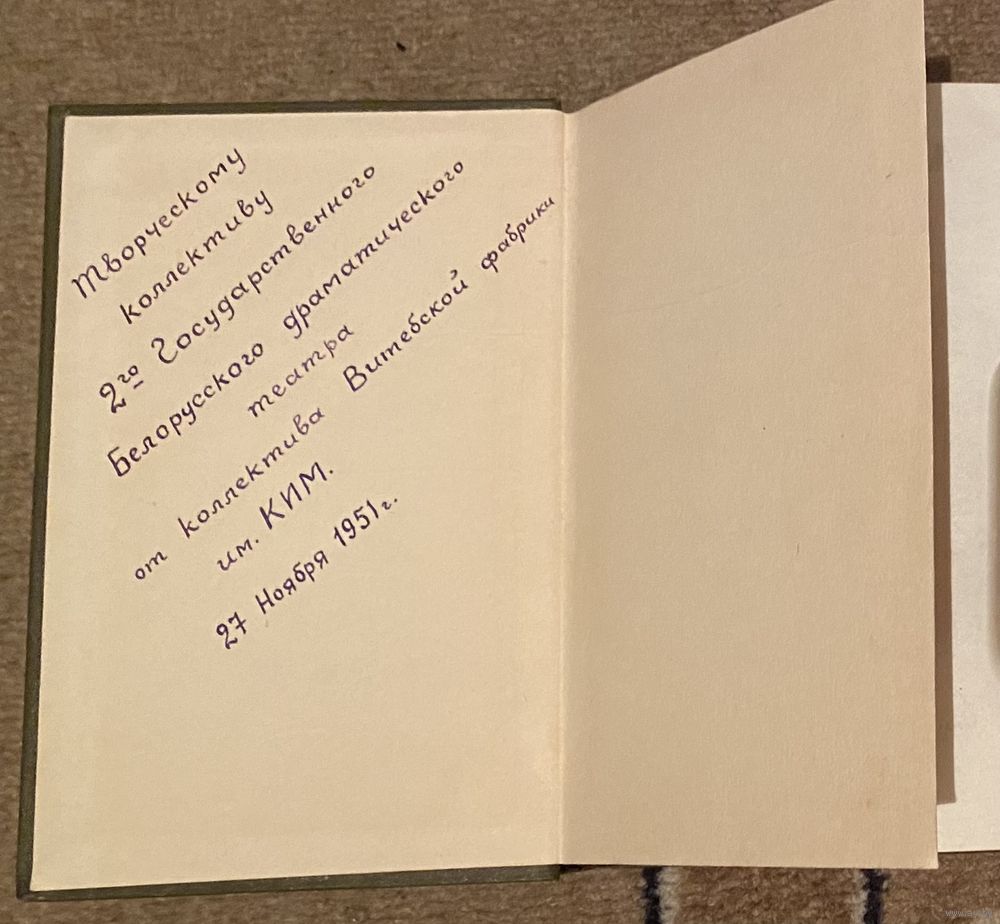 Творческому
коллективу
2го Государственного
Белорусского драматического
театра
от коллектива Витебской фабрики
им. КИМ.
27 Ноября 1951г.